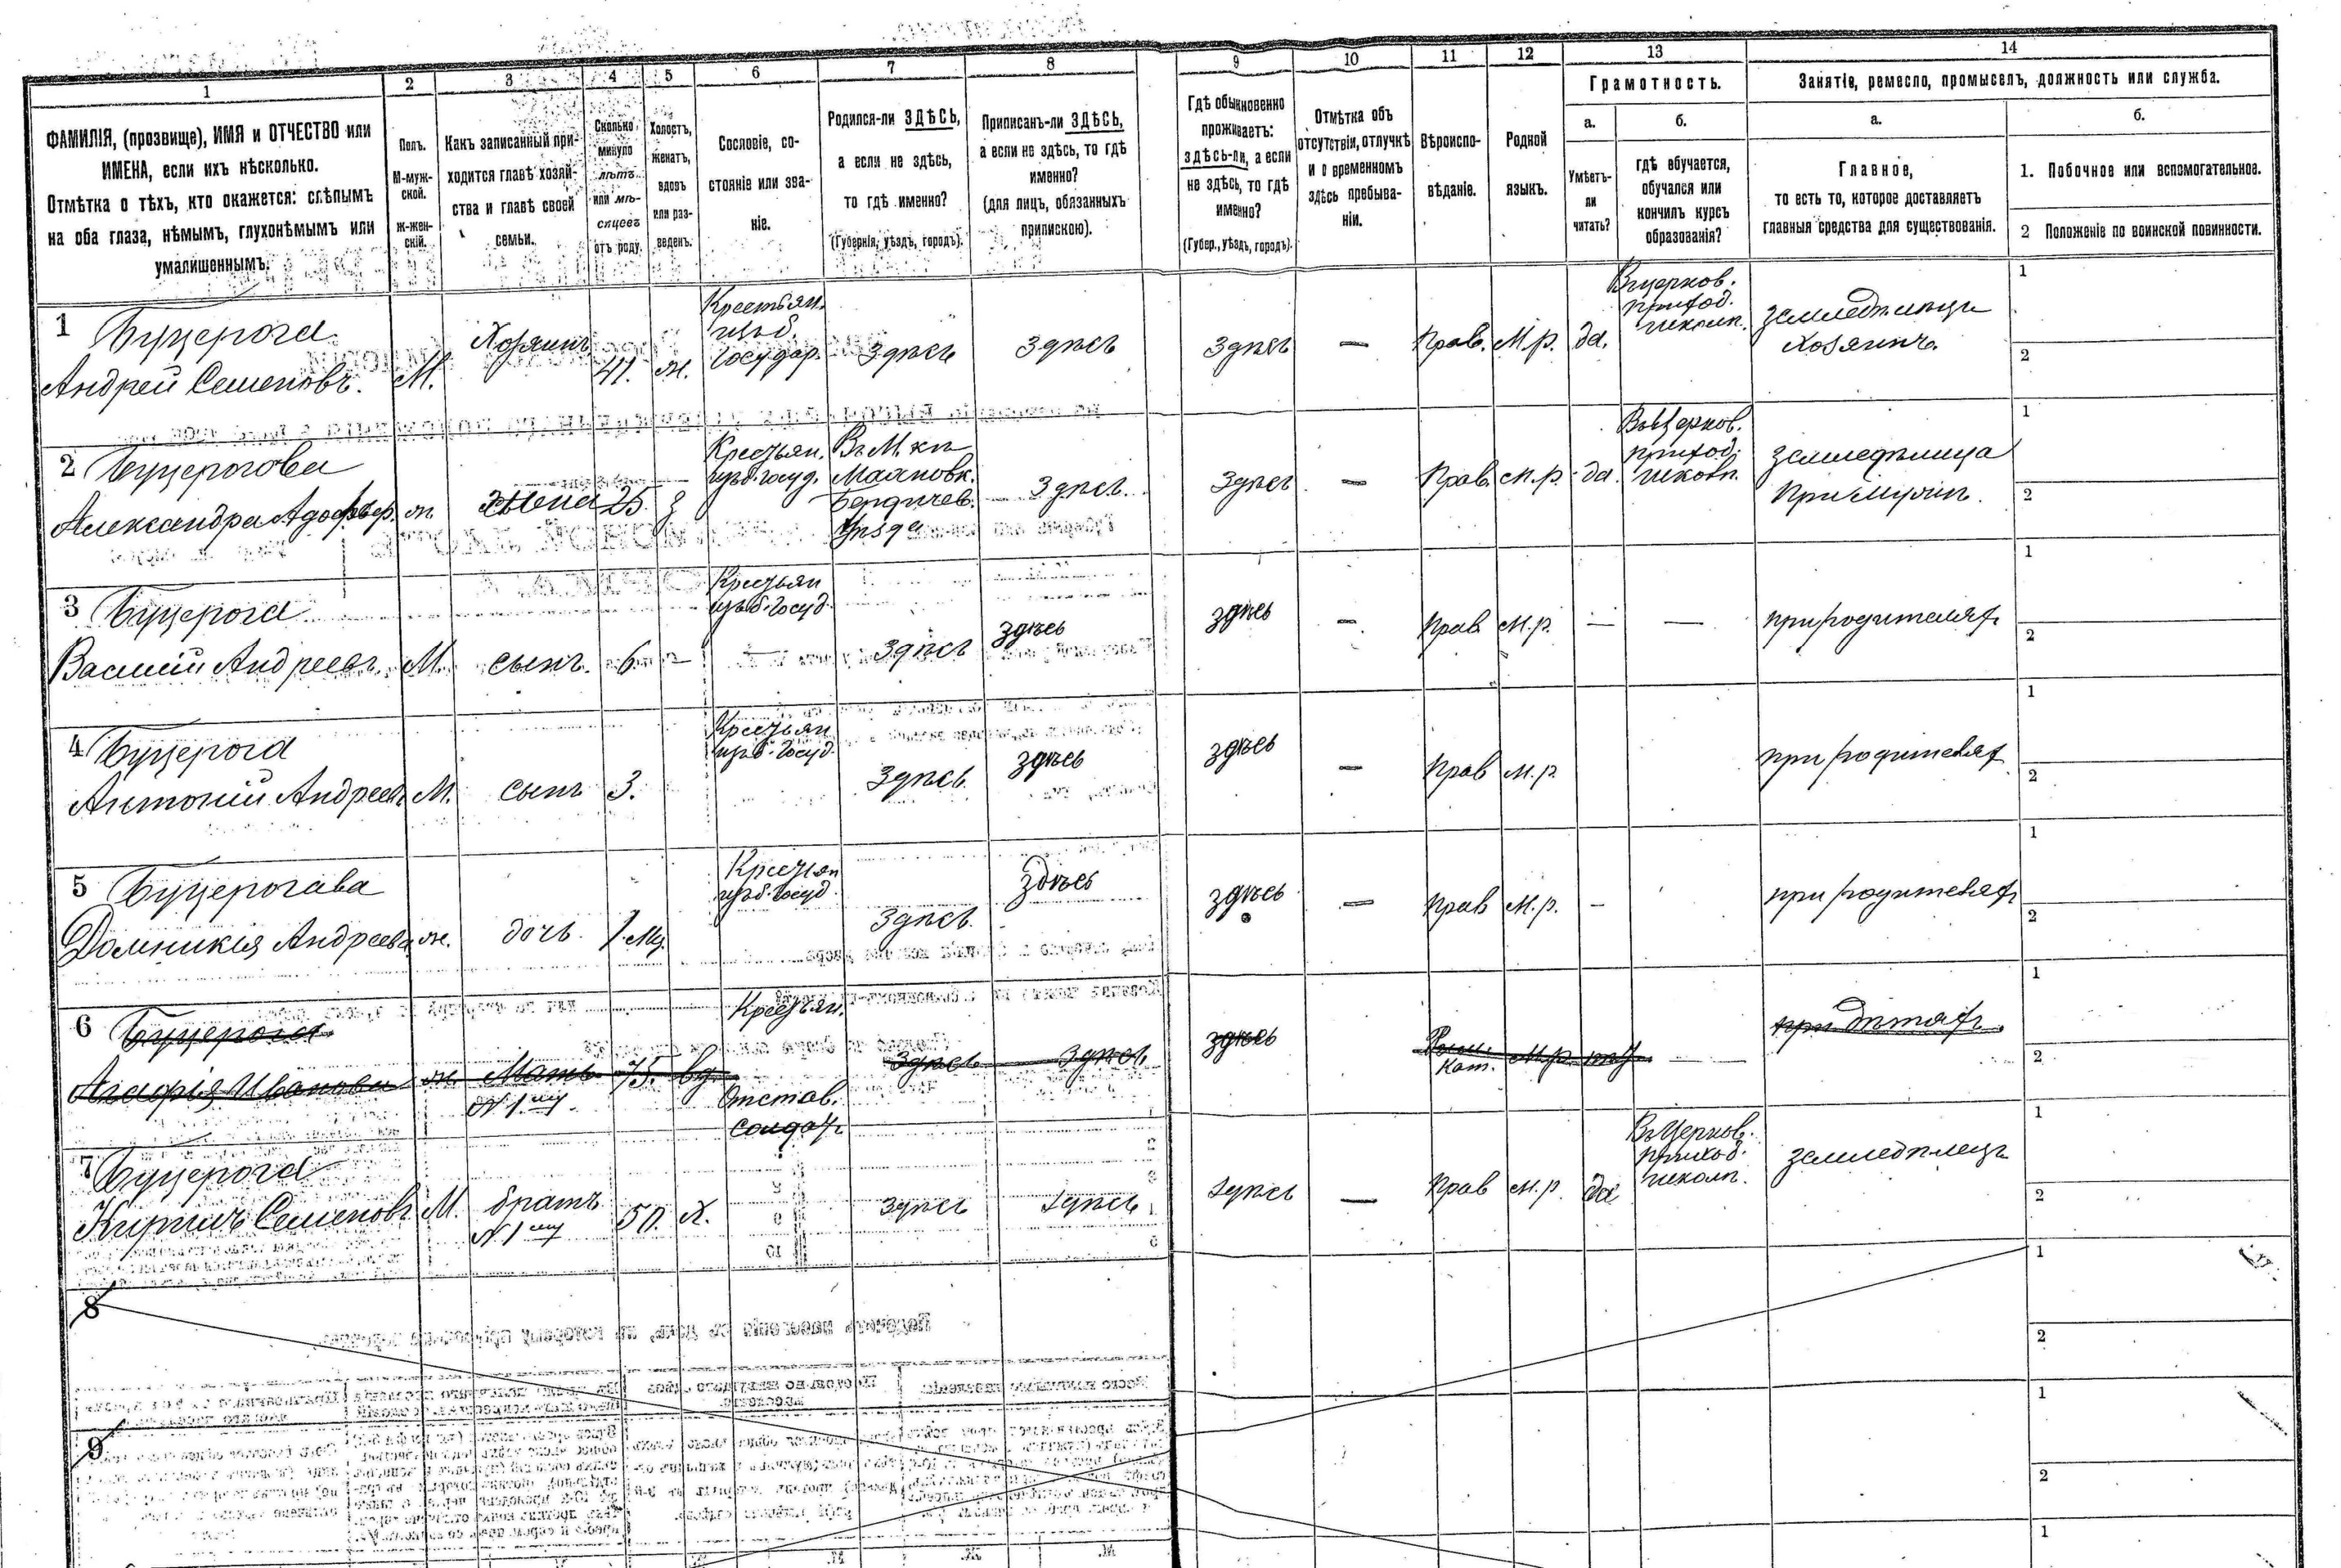 1 2 3 4 5 6 7 8 9 10 11 12 13 14
ФАМИЛІЯ, (прозвище), ИМЯ и ОТЧЕСТВО или
ИМЕНА, если ихъ нѣсколько.
Отмѣтка о тѣхъ, кто окажется: слѣпымъ
на оба глаза, нѣмымъ, глухонѣмымъ или
умалишеннымъ.
Полъ.
М-муж-
ской.
ж-жен-
скій.
Какъ записанный при-
ходится главѣ хозяй-
ства и главѣ своей
семьи.
Сколько
минуло
лѣтъ
или мѣ-
сяцевъ
отъ роду.
Холостъ,
женатъ,
вдовъ
или раз-
веденъ.
Сословіе, со-
стояніе или зва-
ніе.
Родился-ли ЗДѢСЬ,
а если не здѣсь,
то гдѣ именно?
(Губернія, уѣздъ, городъ).
Приписанъ-ли ЗДѢСЬ,
а если не здѣсь, то гдѣ
именно?
(для лицъ, обязанныхъ
припискою).
Гдѣ обыкновенно
проживаетъ:
здѣсь-ли, а если
не здѣсь, то гдѣ
именно?
(Губер., уѣздъ, городъ).
Отмѣтка объ
отсутствіи, отлучкѣ
и о временномъ
здѣсь пребыва-
ніи.
Вѣроиспо-
вѣданіе.
Родной
языкъ.
Грамотность.
а.
Умѣетъ-
ли
читать?
б.
гдѣ обучается,
обучался или
кончилъ курсъ
образованія?
Занятіе, ремесло, промыселъ, должность или служба.
а.
Главное,
то есть то, которое доставляетъ
главныя средства для существованія.
б.
1. Побочное или вспомогательное.
2 Положеніе по воинской повинности.
1 Буцерога
Андрей Семеновъ. М. Хозяинъ 41. ж.
Крестьян.
изъ б.
государ.
здѣсь здѣсь здѣсь — Прав. М.р. да.
Въ церков.
приход.
школѣ.
земледѣлецъ
Хозяинъ.
1
2
2 Буцерогова
Александра ж жена 25. з
Крестьян.
изъ б. госуд.
Въ М.кѣ
Маяновк.
Бердичев.
Уѣзда
здѣсь. здѣсь — Прав. м.р. да.
Въ Церков.
приход.
школѣ.
земледѣлица
При Мужѣ.
1
2
3 Буцерога
Василій Андреевъ. М. сынъ. 6. —
Крестьян
изъ б. госуд.
здѣсь здѣсь здѣсь — Прав. м.р. — —
при родителяхъ
1
2
4 Буцерога
Антоній Андреевъ М. сынъ 3.
Крестьян
изъ б. госуд.
здѣсь здѣсь здѣсь — Прав м.р.
при родителях
1
2
5 Буцерогава
Домникія Андреева ж. дочь 1. мц.
Крестьян
изъ б. госуд.
здѣсь. здѣсь здѣсь — Прав м.р. —
при родителяхъ
1
2
6 Буцерога
Агафія Иванова ж. Мать 75. вд
N 1му.
Крестьян.
здѣсь здѣсь здѣсь
Рим.
Кат.
м.р. нѣт —
при дѣтяхъ.
1
2
7 Буцерога
Кирилъ Семеновъ М. братъ 50. Х.
N 1му
Отстав.
солдатъ
здѣсь здѣсь здѣсь — Прав м.р. да
Въ Церков.
приход.
школѣ.
земледѣлецъ
1
2
8
1
2
9
1
2
1